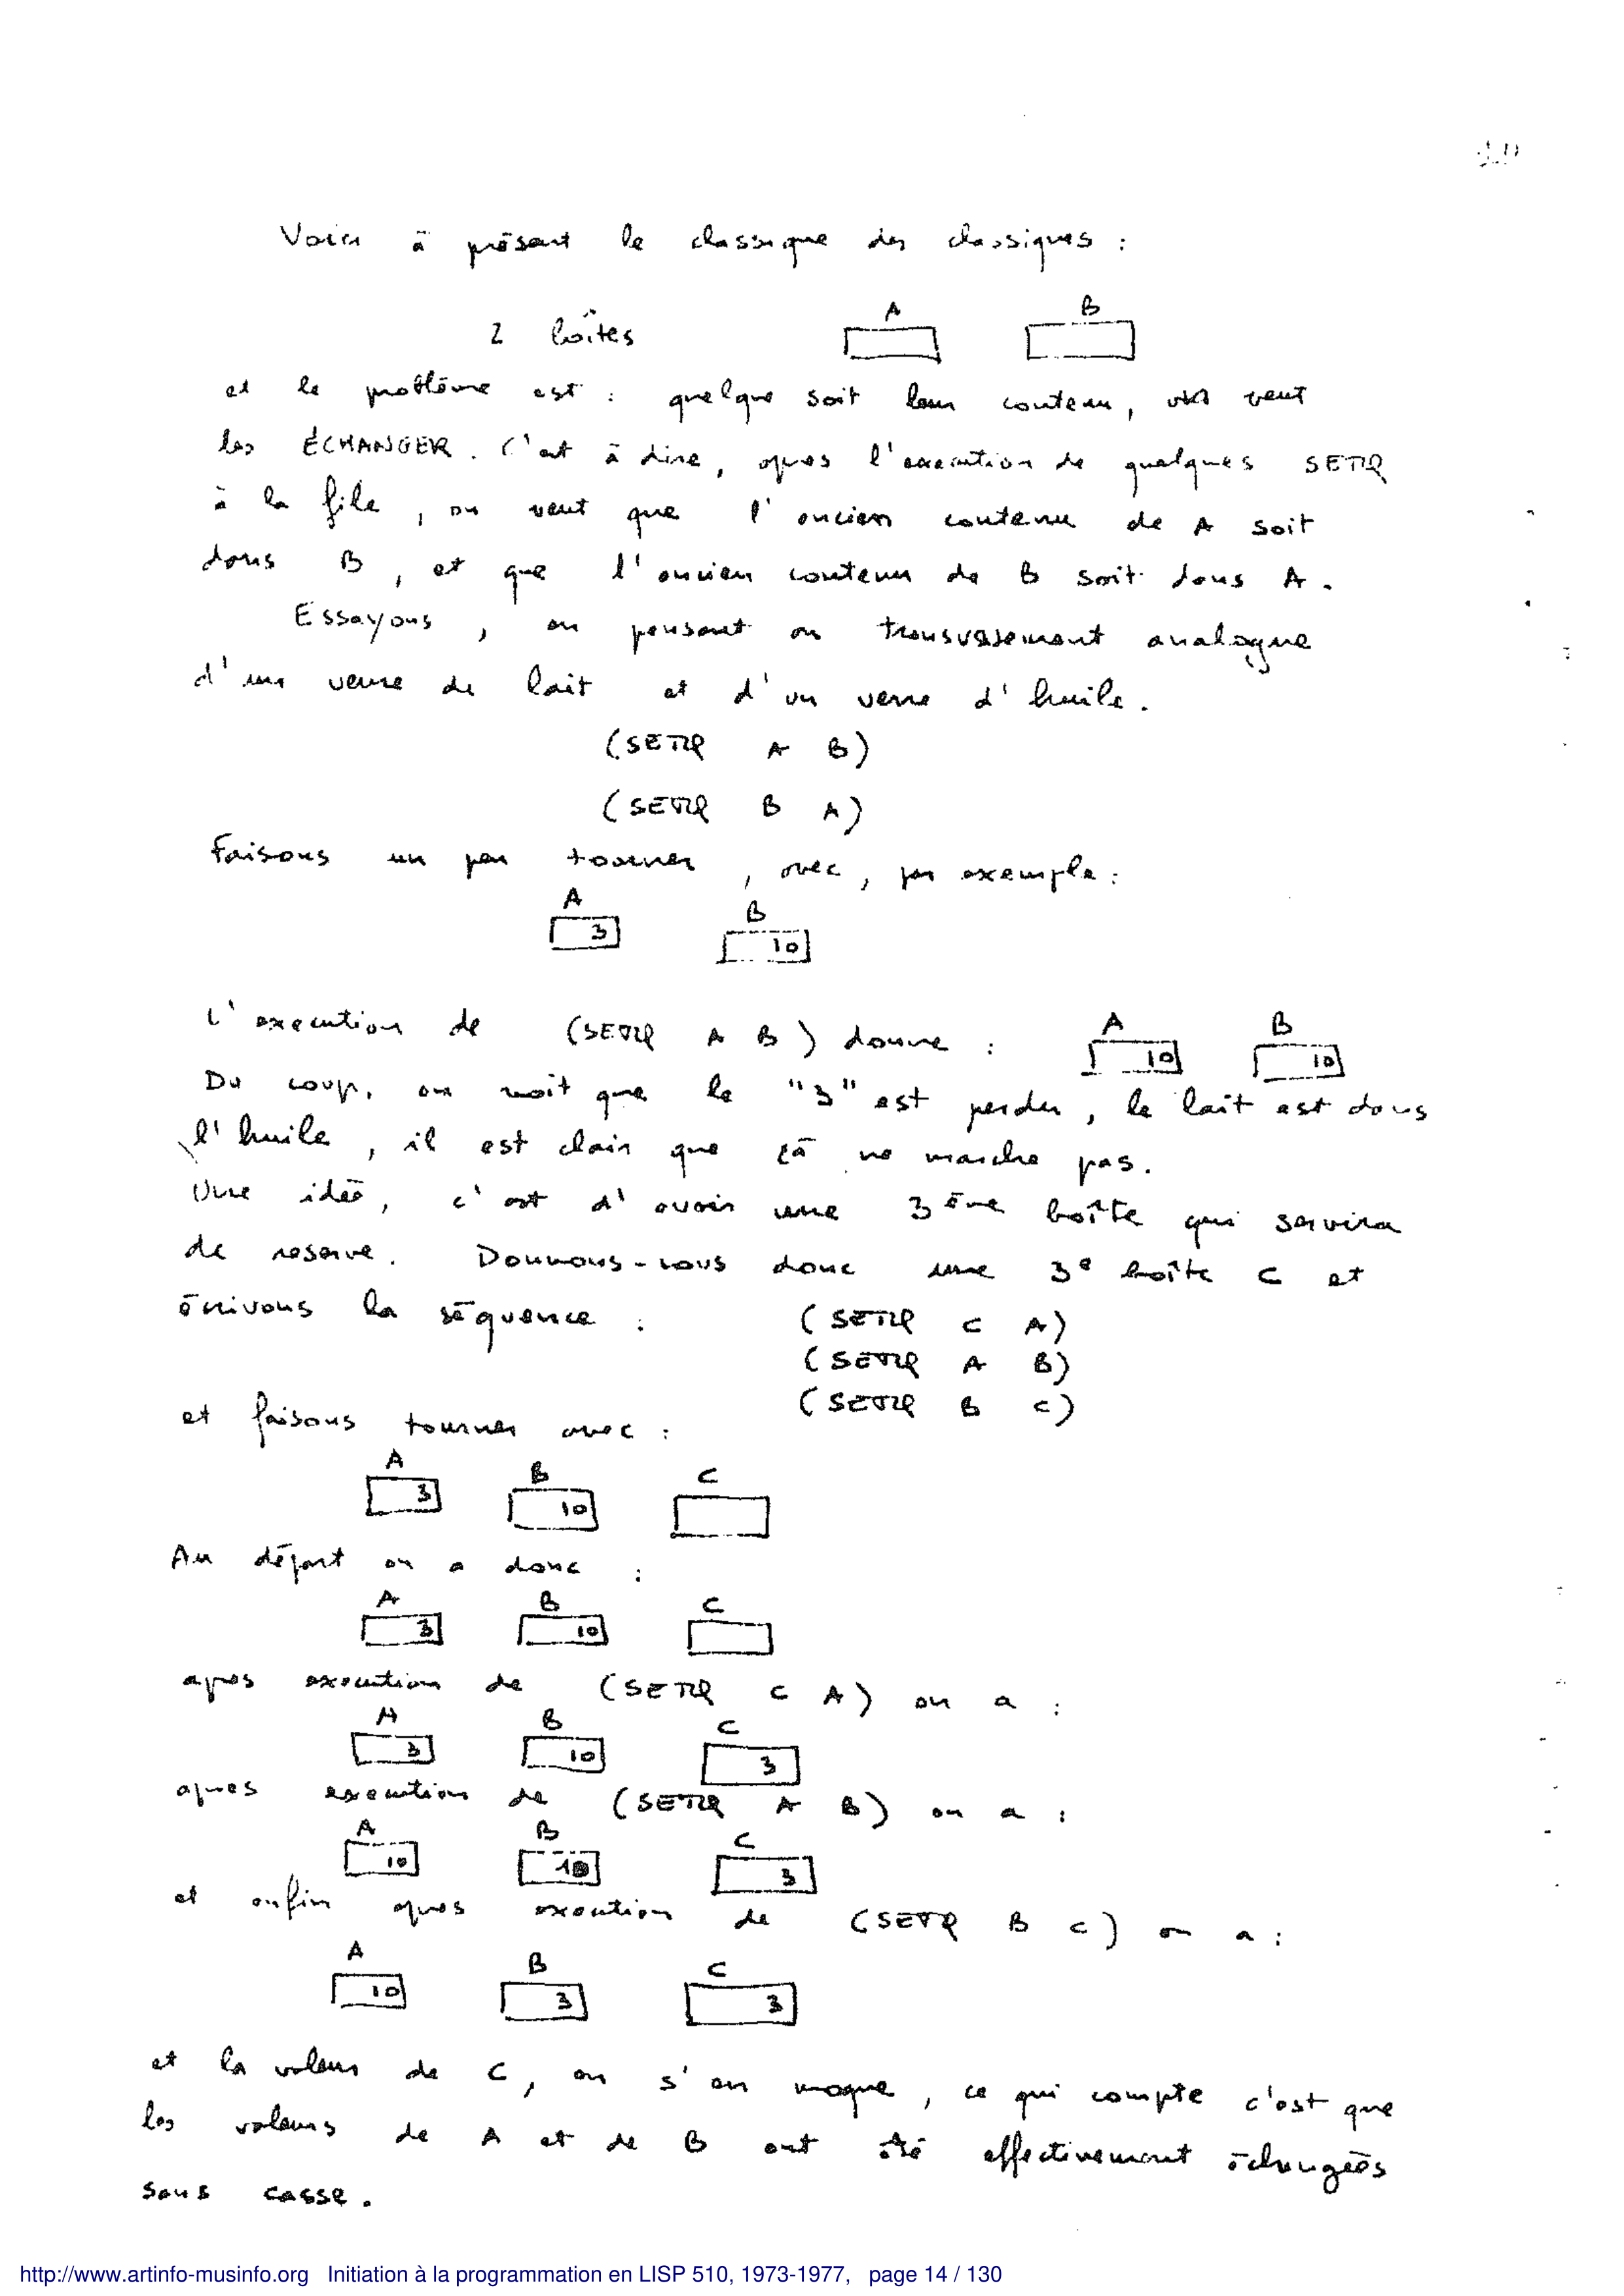 Voici à présent le classique des classiques :
A B
2 boîtes
et le problème est : quelque soit leur contenu, on veut
les ÉCHANGER. C'est à dire, apres l'execution de quelques SETQ
à la file, on veut que l'ancien contenu de A soit
dans B, et que l'ancien contenu de B soit dans A.
Essayons, en pensant au transvasement analogue
d'un verre de lait et d'un verre d'huile.
(SETQ A B)
(SETQ B A)
Faisons un peu tourner, avec, par exemple :
A B
3 10
L'execution de (SETQ A B) donne :
A B
10 10
Du coup, on voit que le "3" est perdu, le lait est dans
l'huile, il est clair que çà ne marche pas.
Une idée, c'est d'avoir une 3ème boîte qui servira
de reserve. Donnons-nous donc une 3e boîte C et
écrivons la séquence : (SETQ C A)
(SETQ A B)
(SETQ B C)
et faisons tourner avec :
A B C
3 10
Au départ on a donc :
A B C
3 10
apres execution de (SETQ C A) on a :
A B C
3 10 3
apres execution de (SETQ A B) on a :
A B C
10 10 3
et enfin apres execution de (SETQ B C) on a :
A B C
10 3 3
et la valeur de C, on s'en moque, ce qui compte c'est que
les valeurs de A et de B ont été effectivement échangées
sans casse.
http://www.artinfo-musinfo.org Initiation à la programmation en LISP 510, 1973-1977, page 14 / 130